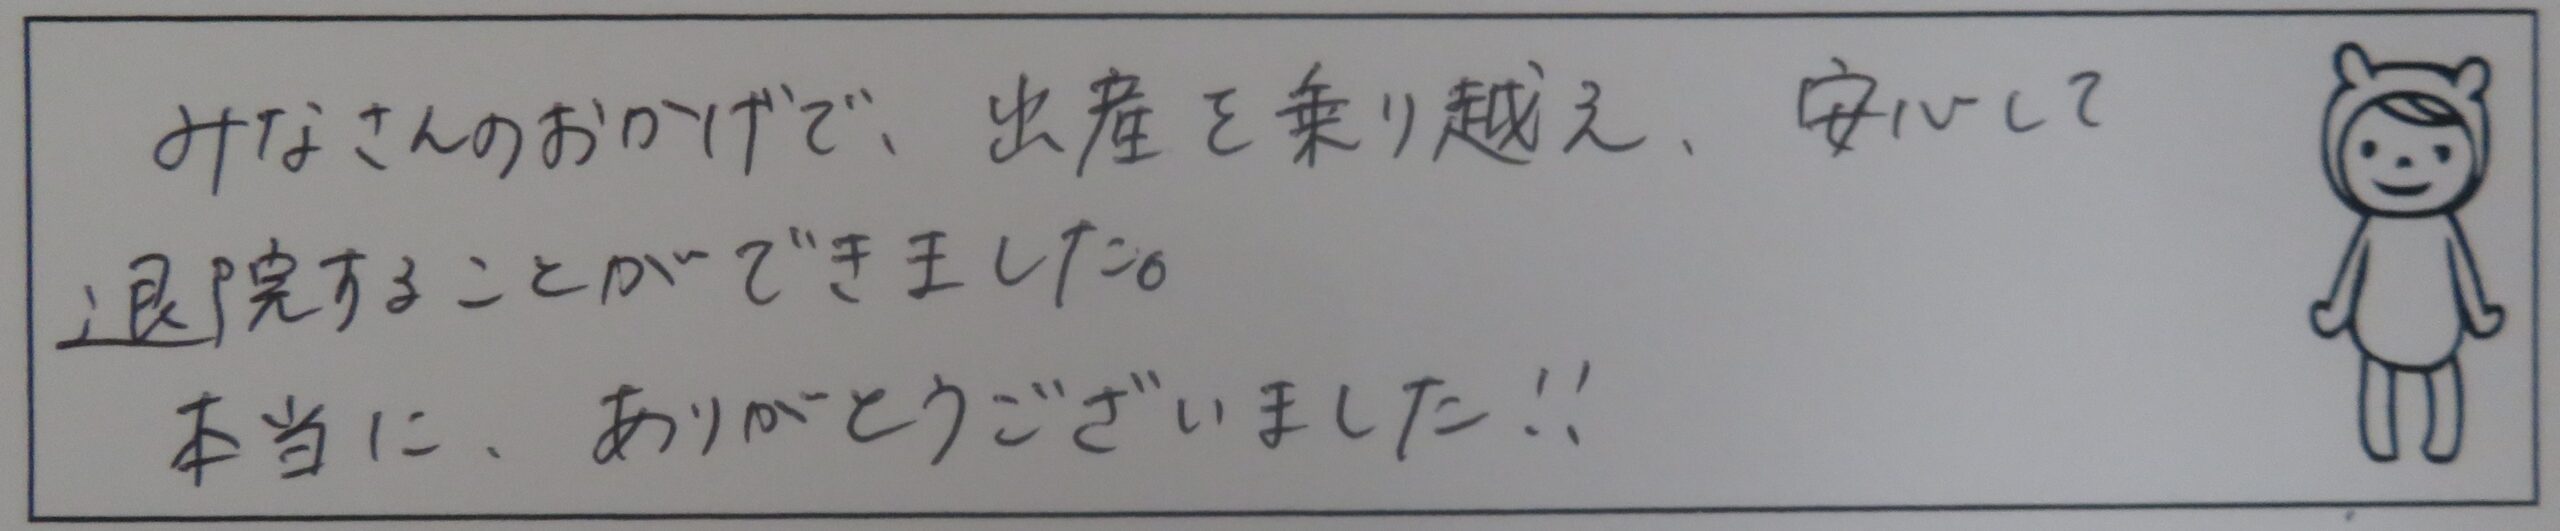 みなさんのおかげで、出産を乗り越え、安心して
退院することができました。
本当に、ありがとうございました!!